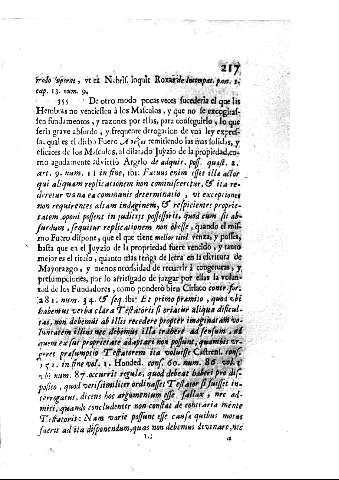 217
trodo operas, ut ex Nebris. loquit Roxas de Incompat. part. 1.
cap. 13. num. 9.
355 De otro modo pocas veces sucederia el que las
Hembras no venciessen à los Masculos, y que no se excogitas-
sen fundamentos, y razones por ellas, para conseguirlo, lo que
seria grave absurdo, y frequente derogacion de una ley expres-
sa, qual es el dicho Fuero remitiendo las mas solidas, y
eficaces de los Masculos, al dilatado Juyzio de la propiedad, co-
mo agudamente advirtiò Angelo de adquir. poss. quæst. 2.
art. 9. num. 11 in fine, ibi: Fatuus enim esset ille actor
qui aliquam replicationem non cominisceretur, & ita re-
deretur vana ea communis determinatio, ut exceptiones
non requirentes altam indaginem, & respicientes proprie-
tatem opponi possent in judicijs possessorijs, quod cum sit ab-
surdum, sequitur replicationem non obesse, quando el mis-
mo Fuero dispone, que el que tiene mellor titol venza, y possea,
hasta que en el Juyzio de la propiedad fuere vencido, y tanto
mejor es el titulo, quanto mas tenga de letra en la escritura de
Mayorazgo, y menos necessidad de recurrir à congeturas, y
presumpciones, por lo arriesgado de juzgar por ellas la volun-
tad de los Fundadores, como ponderò bien Ciriaco controv. for.
281. num. 34. & seq. ibi: Et primo præmio, quod ubi
habemus verba clara Testatoris si oriatur aliqua dificul-
tas, non debemus ab illis recedere propter imaginatam vo-
luntatem illius nec debemus illa trahere ad sensum, ad
quem ex sua proprietate adaptari non possunt, quambis ur-
geret presumptio Testatorem ita voluisse Castrens. cons.
152. in fine vol. 1. Honded. cons. 60. num. 86. vol.
ubi num. 87. occurrit regula, quod debeat haberi pro dis-
posito, quod verisimiliter ordinasset Testator si fuisset in-
terrogatus, dicens hoc argumentum esse fallax, nec ad-
miti, quando concludenter non constat de contraria mente
Testatoris: Nam variæ possunt esse causæ quibus motus
fuerit ad ita disponendum, quas non debemus divinare, nec